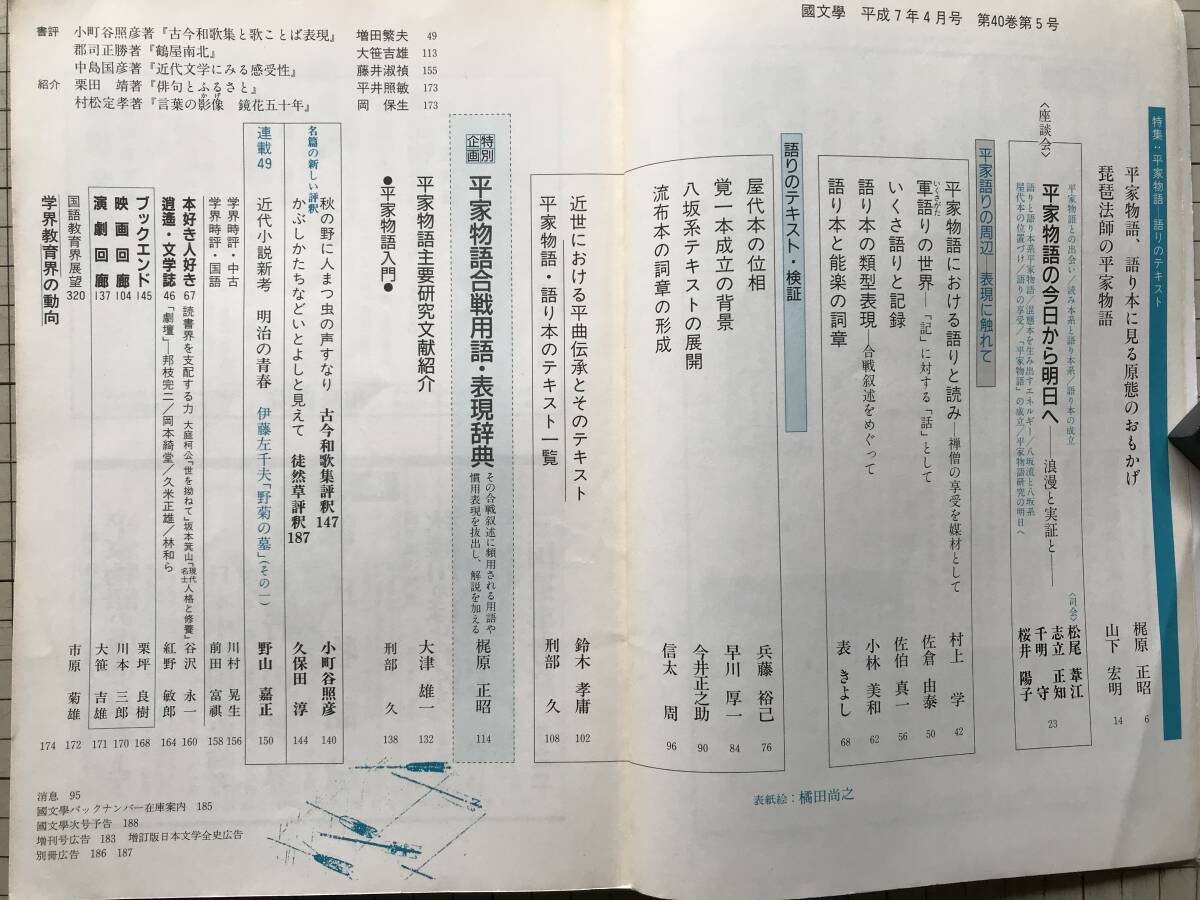 國文學 平成7年4月号 第40巻第5号
特集：平家物語―語りのテキスト
平家物語、語り本に見る原態のおもかげ 梶原 正昭 6
琵琶法師の平家物語 山下 宏明 14
〈座談会〉
平家物語の今日から明日へ――浪漫と実証と――
〈司会〉松尾 葦江
志立 正知
千明 守
桜井 陽子
23
平家物語との出会い／読み本系と語り本系／語り本の成立
語りと語り本系平家物語／混態本を生み出すエネルギー／八坂流と八坂系
屋代本の位置づけ／語りの享受／「平家物語」の成立／平家物語研究の明日へ
平家語りの周辺 表現に触れて
平家物語における語りと読み――禅僧の享受を媒材として 村上 学 42
軍語りの世界――「記」に対する「話」として 佐倉 由泰 50
いくさがたり
いくさ語りと記録 佐伯 真一 56
語り本の類型表現 合戦叙述をめぐって 小林 美和 62
語り本と能楽の詞章 表 きよし 68
語りのテキスト・検証
屋代本の位相 兵藤 裕己 76
覚一本成立の背景 早川 厚一 84
八坂系テキストの展開 今井正之助 90
流布本の詞章の形成 信太 周 96
近世における平曲伝承とそのテキスト 鈴木 孝庸 102
平家物語・語り本のテキスト一覧 刑部 久 108
特別企画
平家物語合戦用語・表現辞典
その合戦叙述に頻用される用語や
慣用表現を抜出し、解説を加える
梶原 正昭 114
平家物語主要研究文献紹介 大津 雄一 132
●平家物語入門● 刑部 久 138
名篇の新しい評釈
秋の野に人まつ虫の声すなり 古今和歌集評釈147 小町谷照彦 140
かぶしかたちなどいとよしと見えて 徒然草評釈187 久保田 淳 144
連載49
近代小説新考 明治の青春 伊藤左千夫「野菊の墓」（その一） 野山 嘉正 150
学界時評・中古 川村 晃生 156
学界時評・国語 前田 富祺 158
本好き人好き67 読書界を支配する力 大庭柯公「世を拗ねて」坂本箕山「現代名士人格と修養」 谷沢 永一 160
逍遙・文学誌46 「劇壇」―邦枝完二／岡本綺堂／久米正雄／林和ら 紅野 敏郎 164
ブックエンド145 栗坪 良樹 168
映画回廊104 川本 三郎 170
演劇回廊137 大笹 吉雄 171
国語教育界展望320 市原 菊雄 172
学界教育界の動向 174
書評 小町谷照彦著『古今和歌集と歌ことば表現』 増田繁夫 49
郡司正勝著『鶴屋南北』 大笹吉雄 113
中島国彦著『近代文学にみる感受性』 藤井淑禎 155
紹介 栗田 靖著『俳句とふるさと』 平井照敏 173
村松定孝著『言葉の影像 鏡花五十年』 岡 保生 173
かげ
消息 95
國文學バックナンバー在庫案内 185
國文學次号予告 188
増刊号広告 183 増訂版日本文学全史広告
別冊広告 186 187
表紙絵：橘田尚之